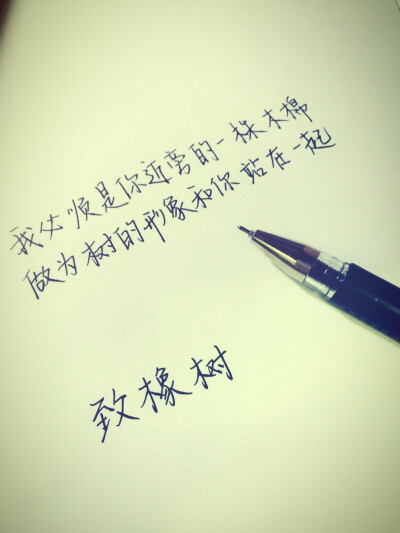 我必须是你近旁的一株木棉
做为树的形象和你站在一起
致橡树